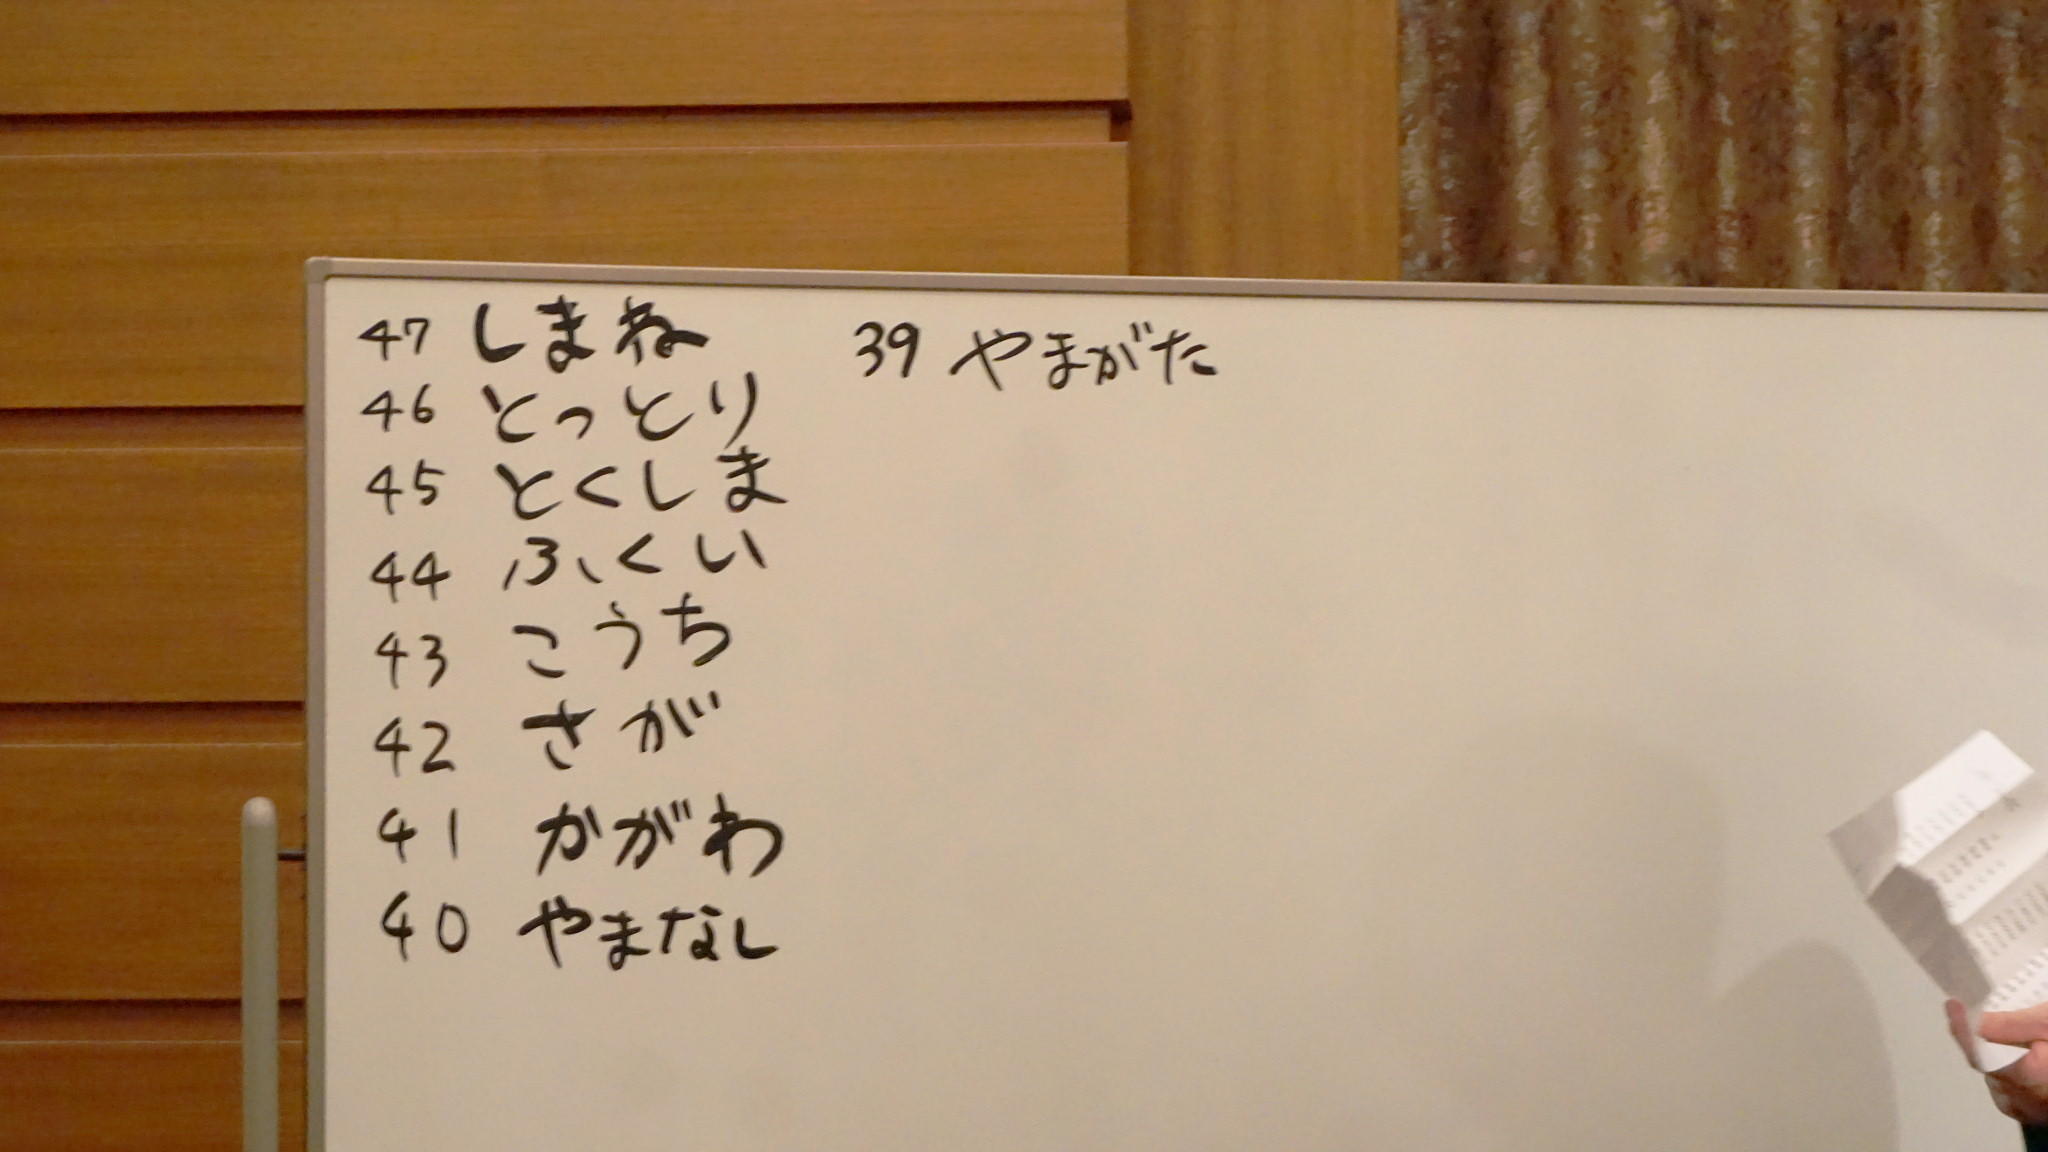 47 しまね
46 とっとり
45 とくしま
44 ふくい
43 こうち
42 さが
41 かがわ
40 やまなし
39 やまがた